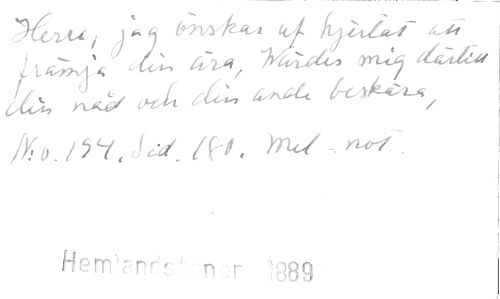 Herre, jag önskar af hjertat att
främja din ära, Wärdes mig därtill
din nåd och din ande beskära,
No. 194. Sid. 180. Mel. not.
Hemlandstoner 1889